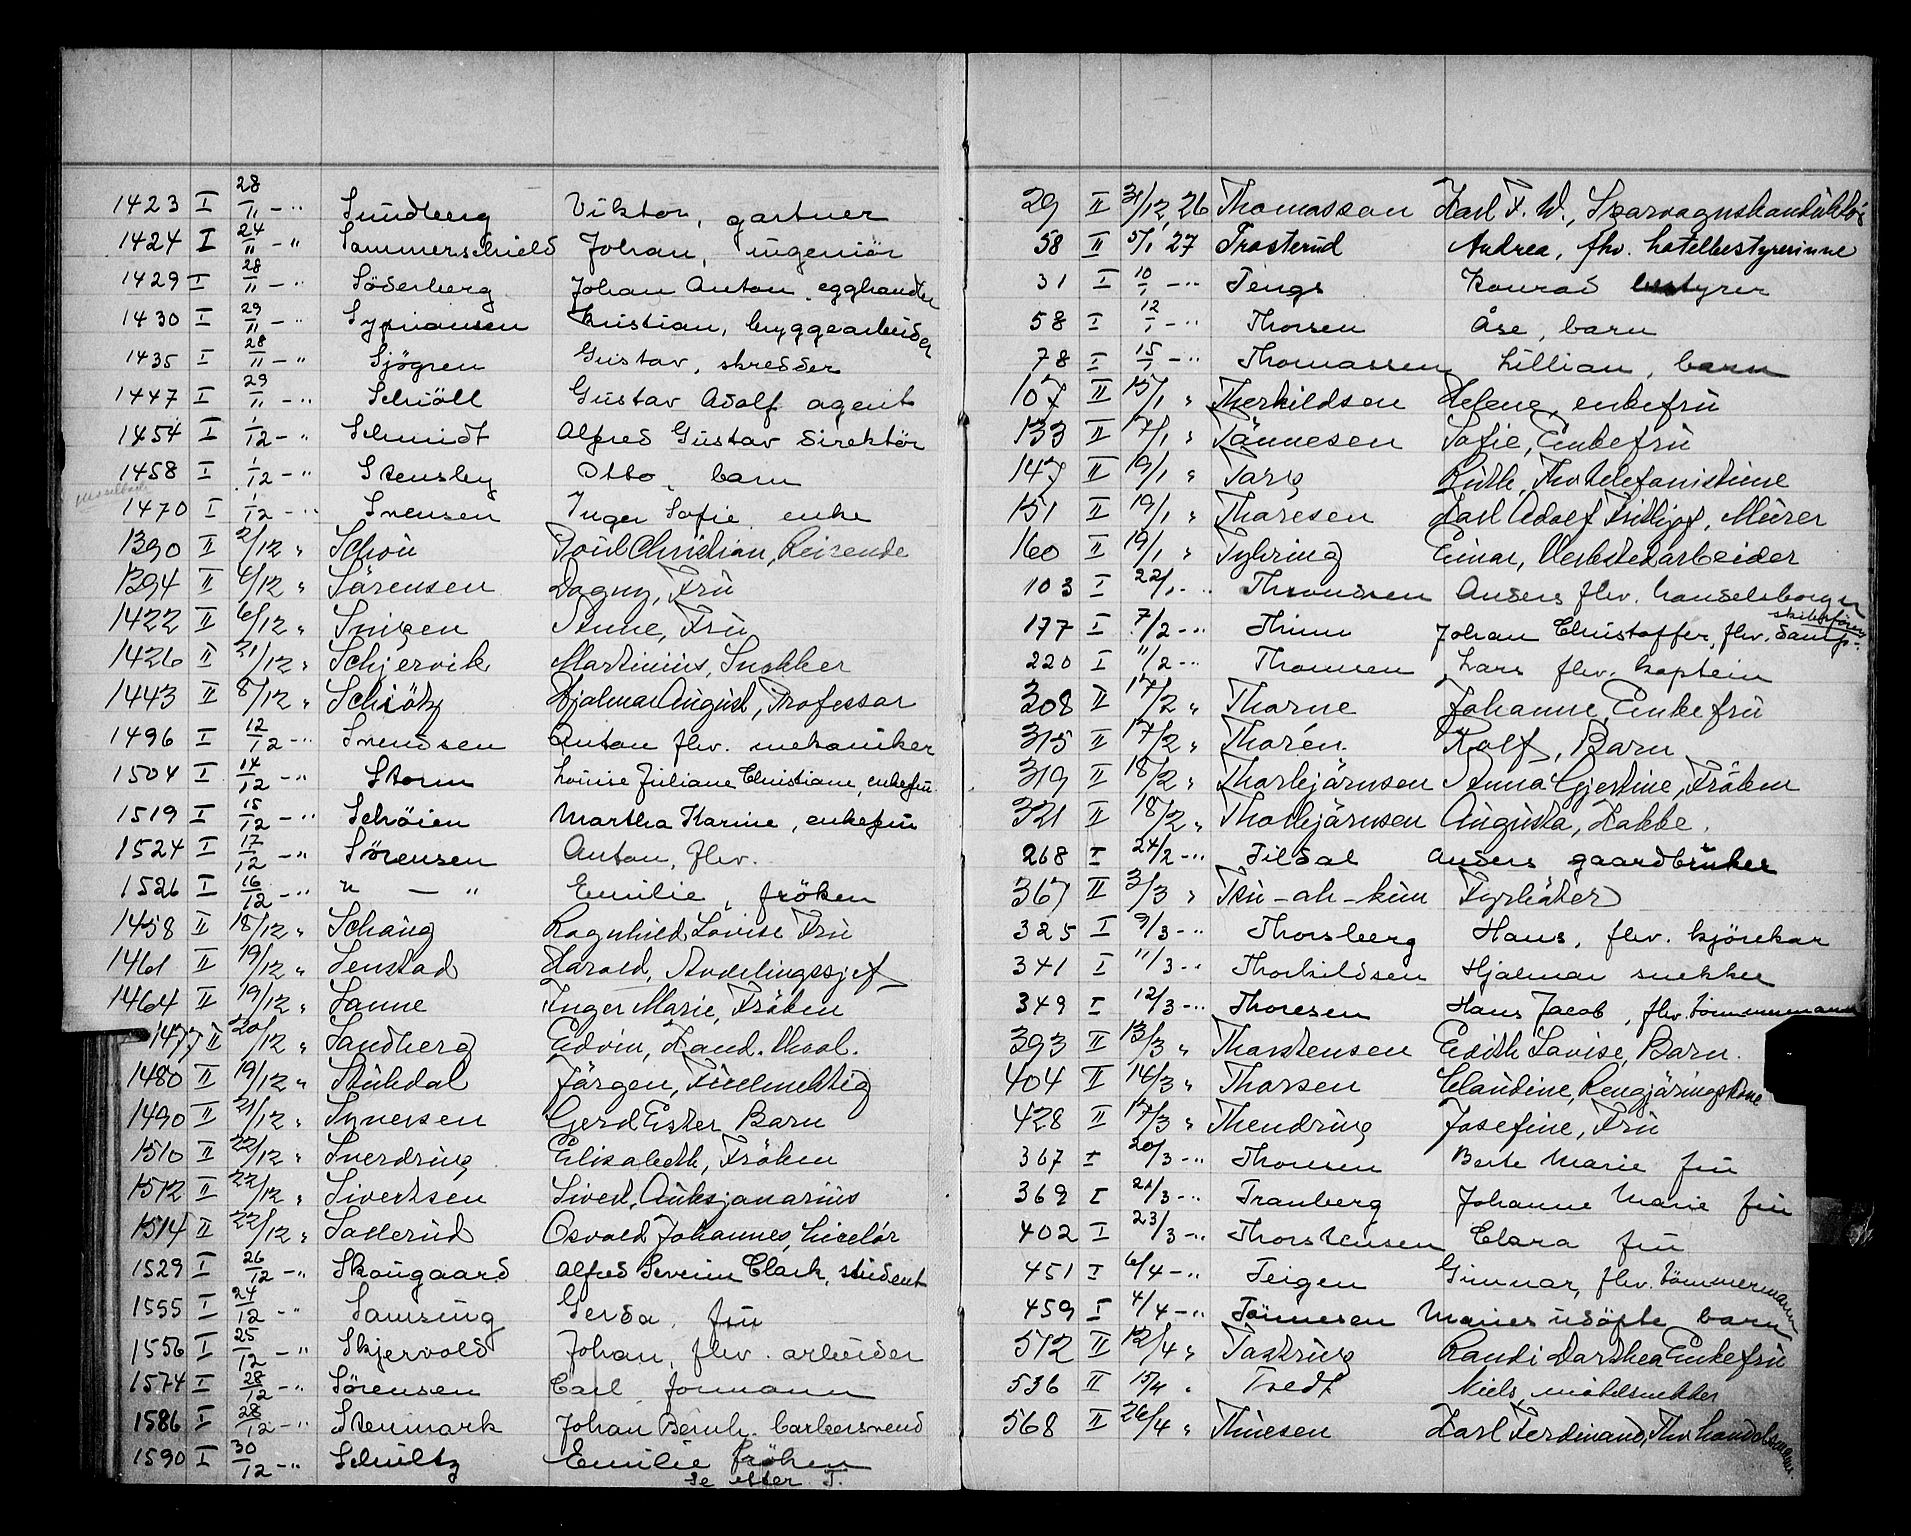 1423 I 28/11 - " Sundberg Viktor, gartner
1424 I 24/11 - " Sammerschield Johan, ingeniör
1429 I 28/11 - " Söderberg Johan Anton, egghandler
1430 I 29/11 - " Sypriansen Kristian, bryggearbeider
1435 I 28/11 - " Sjögren Gustav, skredder
1447 I 29/11 - " Schiöll Gustav Adolf agent
1454 I 1/12 - " Schmidt Alfred Gustav direktör
1458 I 1/12 - " Stensby Otto, barn
1470 I 1/12 - " Svensen Inger Sofie enke
1390 II 2/12 " Schou Poul Christian, Reisende
1394 II 6/12 " Sørensen Dagny, Fru
1422 II 6/12 " Fru
1426 II 21/12 " Schjervik Martinius, Snekker
1443 II 8/12 " Schiötz Hjalmar August, Professor
1496 I 12/12 - " Svendsen Anton fhv. mekaniker
1504 I 14/12 - " Storm Louise Juliane Christiane, enkefru
1519 I 15/12 - " Schöien Martha Karine, enkefru
1524 I 17/12 - " Sørensen Anton, fhv.
1526 I 16/12 - " " — " Emilie, fröken
1458 II 18/12 " Schang Ragnhild Lovise Fru
1461 II 19/12 " Senstad Harald, Avdelingssjef
1464 II 19/12 " Sanne Inger Marie, Fröken
1477 II 20/12 " Sandberg Edvin, Kand. theol.
1480 II 19/12 " Stuhdal Jørgen, Fuldmektig
1490 II 21/12 " Syversen Gerd Ester, Barn
1510 II 22/12 " Sverdrup Elisabeth, Fröken
1512 II 22/12 " Sivertsen Sivert, Auksjonarius
1514 II 22/12 " Saxlerud Osvald Johannes, Giselör
1529 I 26/12 - " Skougaard Alfred Severin Clark, student
1555 I 24/12 - " Samsing Gerda, fru
1556 I 25/12 - " Skjervold Johan, fhv. arbeider
1574 I 28/12 - " Sørensen Carl formann
1586 I 28/12 - " Stenmark Johan Bernh. barbersvend
1590 I 30/12 - " Schultz Emilie fröken
Se etter T.
29 II 31/12 26 Thomassen Karl F. W., Sporvognskonduktör
58 II 5/1 27 Trosterud Andrea, fhv. hotelbestyrerinne
31 I 10/1 - " Tengs Konrad bestyrer
58 I 12/1 - " Thorsen Åse, barn
78 I 15/1 - " Thomassen Lillian, barn
107 II 15/1 " Therkildsen Helene, enkefru
133 II 17/1 " Tönnesen Sofie, Enkefru
147 II 19/1 " Torp Ruth, Fhv telefonistinne
151 II 19/1 " Thoresen Karl Adolf Fritjof, Murer
160 II 19/1 " Tybring Einar, Verkstedarbeider
103 I 22/1 - " Thomassen Anders fhv. handelsborger
177 I 7/2 - " Thinn Johan Christoffer, fhv. damp-
skibsförer
220 I 11/2 - " Thomsen Lars fhv. kaptein
308 II 17/2 " Thorne Johanne, Enkefru
315 II 17/2 " Thorén Rolf, Barn
319 II 18/2 " Thorbjörnsen Anna Gjertine, Fröken
321 II 18/2 " Thorbjörnsen Augusta, Kokke.
268 I 24/2 - " Tildal Anders gaardbruker
367 II 3/3 " Tsu-ah-kun Fyrbøter
325 I 9/3 - " Thorsberg Hans, fhv. kjörekar
341 I 11/3 - " Thorkildsen Hjalmar snekker
349 I 12/3 - " Thoresen Hans Jacob, fhv. tømmermann
393 II 13/3 " Thorstensen Edith Lovise, Barn.
404 II 16/3 " Thorsen Claudine, Rengjöringskone
428 II 17/3 " Thendrup Josefine, Fru
367 I 20/3 - " Thomsen Berte Marie fru
369 I 21/3 - " Tranberg Johanne Marie fru
402 I 23/3 - " Thorstensen Clara fru
451 I 6/4 - " Teigen Gunnar, fhv. tømmermann
459 I 4/4 - " Tönnesen Maries udöpte barn
512 II 12/4 " Tostrup Randi Dorthea Enkefru
536 II 15/4 " Tvedt Niels møbelsnekker
568 II 26/4 " Thiesen Karl Ferdinand, Fhv handelsmann.